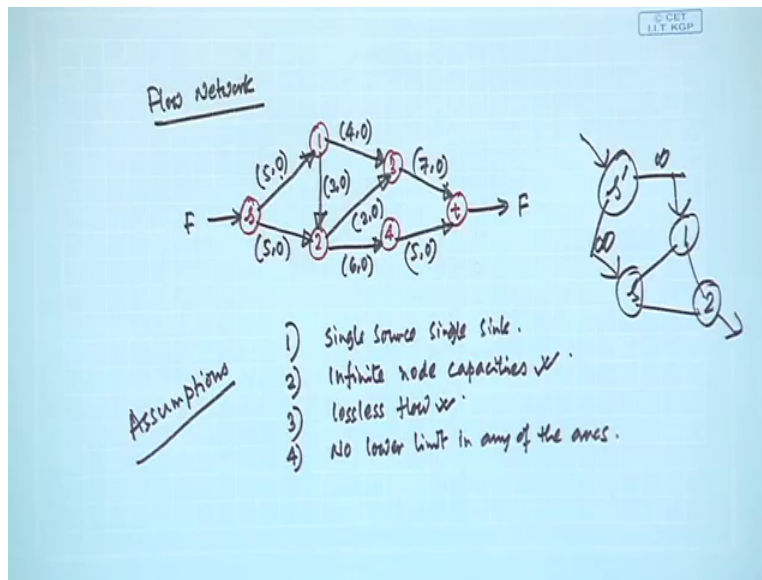 © CET
I.I.T. KGP
Flow Network
(5,0)
(4,0)
(7,0)
(3,0)
(2,0)
(5,0)
(6,0)
(5,0)
F
s
1
2
3
4
t
F
s'
∞
∞
1
s
2
Assumptions
1) Single Source Single Sink.
2) Infinite node capacities
3) lossless flow
4) No lower limit in any of the arcs.